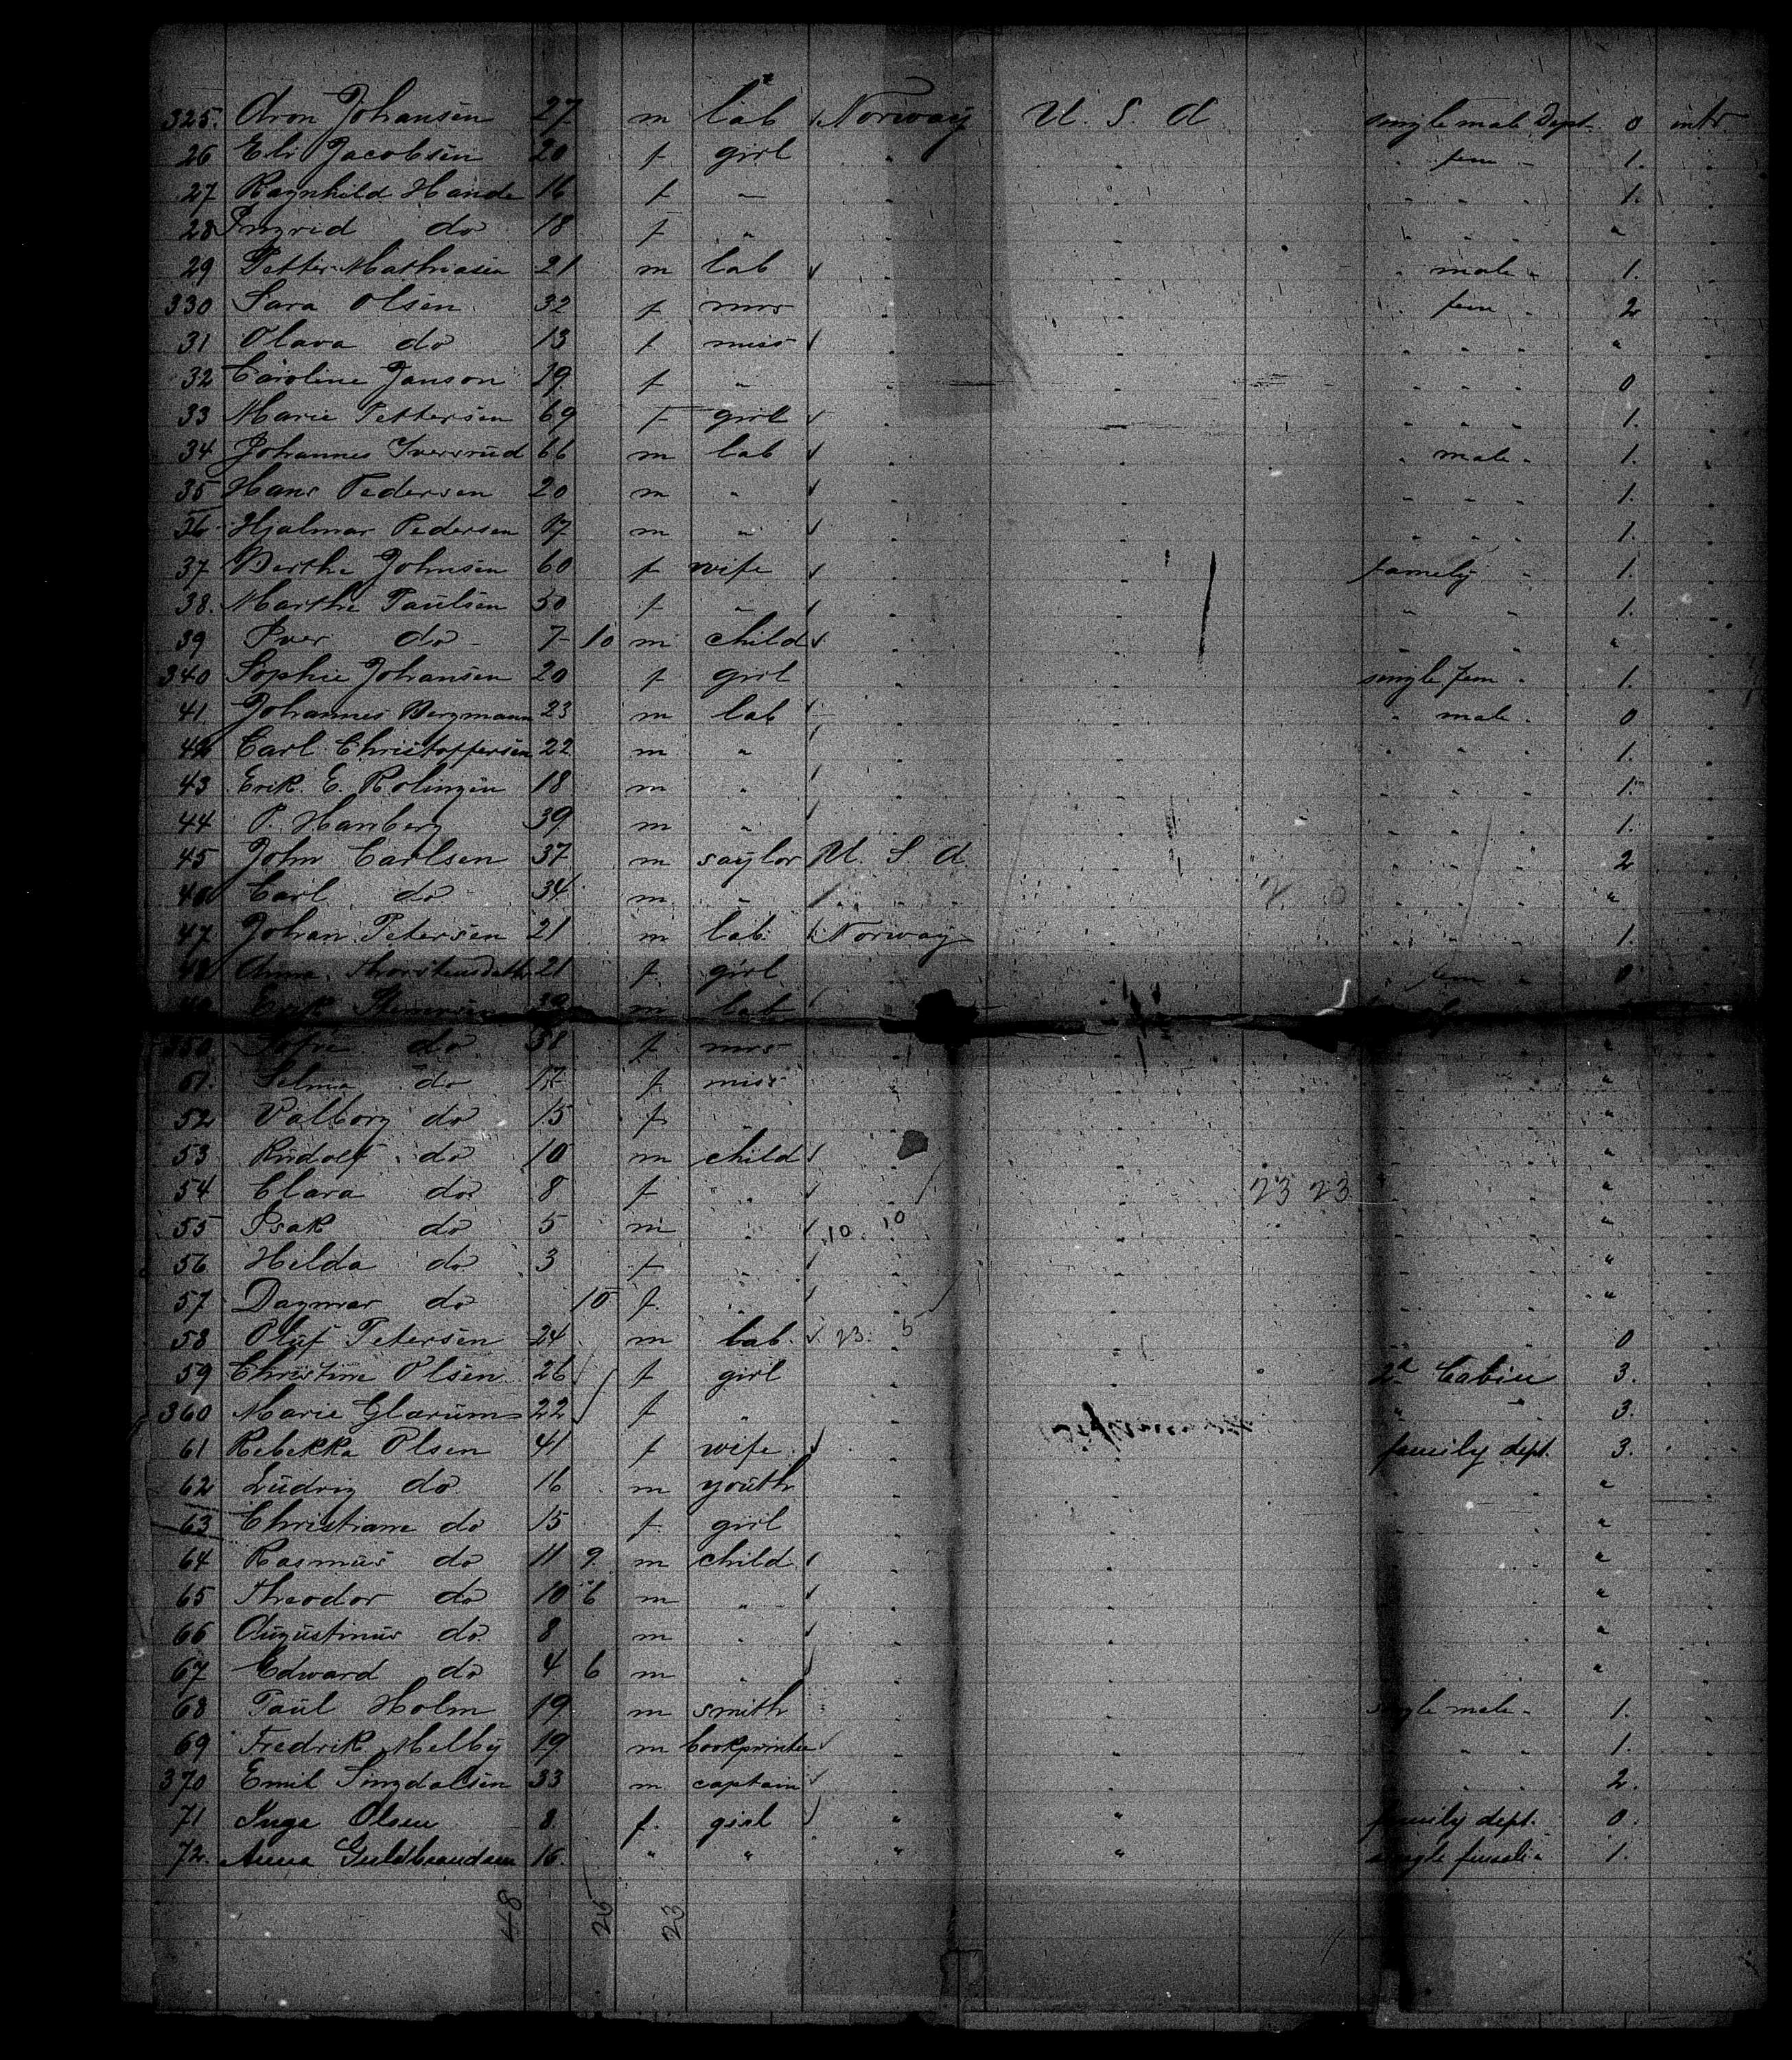 325. Aron Johansen 27 m lab Norway U. S. A single male Dept. 0 intr.
26 Eli Jacobsen 20 f girl " " " fem " 1. "
27 Ragnhild Hande 16 f " " " " " " 1. "
28 Ingrid do 18 f " " " " " " " "
29 Petter Mathiasen 21 m lab " " " male " 1. "
330 Sara Olsen 32 f mrs " " " fem " 2 "
31 Olava do 13 f miss " " " " " " "
32 Caroline Janson 19 f " " " " " " 0 "
33 Marie Pettersen 69 f girl " " " " " 1. "
34 Johannes Iversrud 66 m lab " " " male " 1. "
35 Hans Pedersen 20 m " " " " " " 1. "
36 Hjalmar Pedersen 17 m " " " " " " 1. "
37 Berthe Johnsen 60 f wife " " family " 1. "
38. Marthe Paulsen 50 f " " " " " 1. "
39 Iver do 7 10 m child " " " " " "
340 Sophie Johansen 20 f girl " " single fem " 1. "
41 Johannes Bergmann 23 m lab " " " male " 0 "
42 Carl Christoffersen 22 m " " " " " " 1. "
43 Erik E. 18 m " " " " " " 1. "
44 P. Hanberg 39 m " " " " " " 1. "
45 John Carlsen 37 m saylor U. S. A " " " " 2 "
46 Carl do 34 m " " " " " " " "
47 Johan Petersen 21 m lab. Norway " " " " 1. "
48 Anna 21 f girl " " " fem " 0 "
Erik m lab
350 do 38 f mrs " " "
51. Selma do 17 f miss " " " " " "
52 Valborg do 15 f " " " " " "
53 Rudolf do 10 m child " " " " " "
54 Clara do 8 f " " " 23 23 " " " "
55 Isak do 5 m " 10 10 " " " " "
56 Hilda do 3 f " " " " " " "
57 Dagmar do 10 f. " " " " " " "
58 Oluf Petersen 24 m lab. 23. 5 " " " 0 "
59 Christine Olsen 26 f girl " " 2d Cabin 3. "
360 Marie Glærum 22 f " " " " " 3. "
61 Rebekka Olsen 41 f wife " " family dept. 3. "
62 Ludvig do 16 m youth " " " " " "
63 Christiane do 15 f. girl " " " " " "
64 Rasmus do 11 9. m child " " " " " "
65 Theodor do 10 6 m " " " " " " "
66 Augustinus do. 8 m " " " " " " "
67 Edward do 4 6 m " " " " " " "
68 Paul Holm 19 m smith " " single male " 1. "
69 Fredrik Melby 19 m bookprinter " " " " " 1. "
370 Emil Singdalsen 33 m captain " " " " " 2. "
71 Inga Olsen 8 f. girl " " family dept. 0. "
72. Anna Guldbrandsen 16. " " " " single female " 1. "
48 25 23